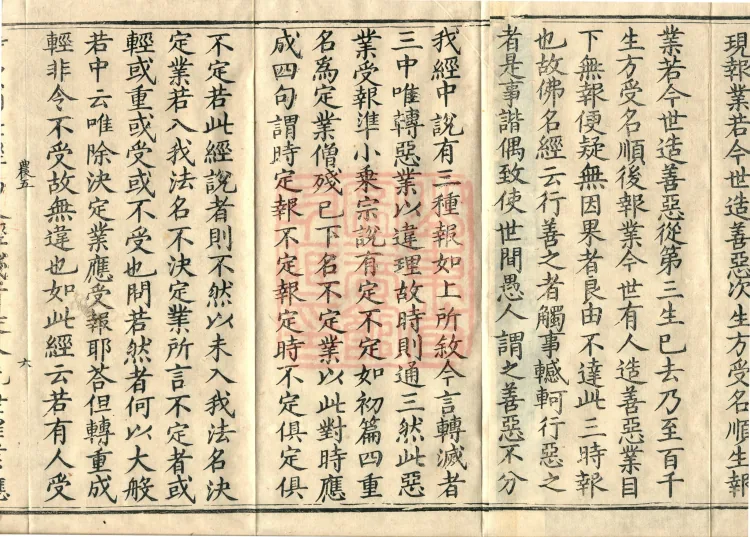 現報業若今世造善惡次生方受名順生報
業若今世造善惡從第三生已去乃至百千
生方受名順後報業今世有人造善惡業目
下無報便疑無因果者良由不達此三時報
也故佛名經云行善之者觸事轗軻行惡之
者是事諧偶致使世間愚人謂之善惡不分
我經中說有三種報如上所敘今言轉滅者
三中唯轉惡業以違理故時則通三然此惡
業受報準小乘宗說有定不定如初篇四重
名為定業僧殘已下名不定業以此對時應
成四句謂時定報不定報定時不定俱定俱
不定若此經說者則不然以未入我法名決
定業若入我法名不決定業所言不定者或
輕或重或受或不受也問若然者何以大般
若中云唯除決定業應受報耶荅但轉重成
農五
六
輕非令不受故無違也如此經云若有人受